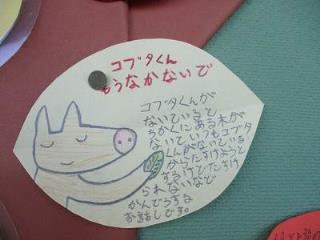 コブタくん
もうなかないで
コブタくんが
ないていると
ちかくにある木が
ないていつもコブタ
くんがないている
からたすけようと
するけどたすけ
られないなで
かんどうする
お話しです。